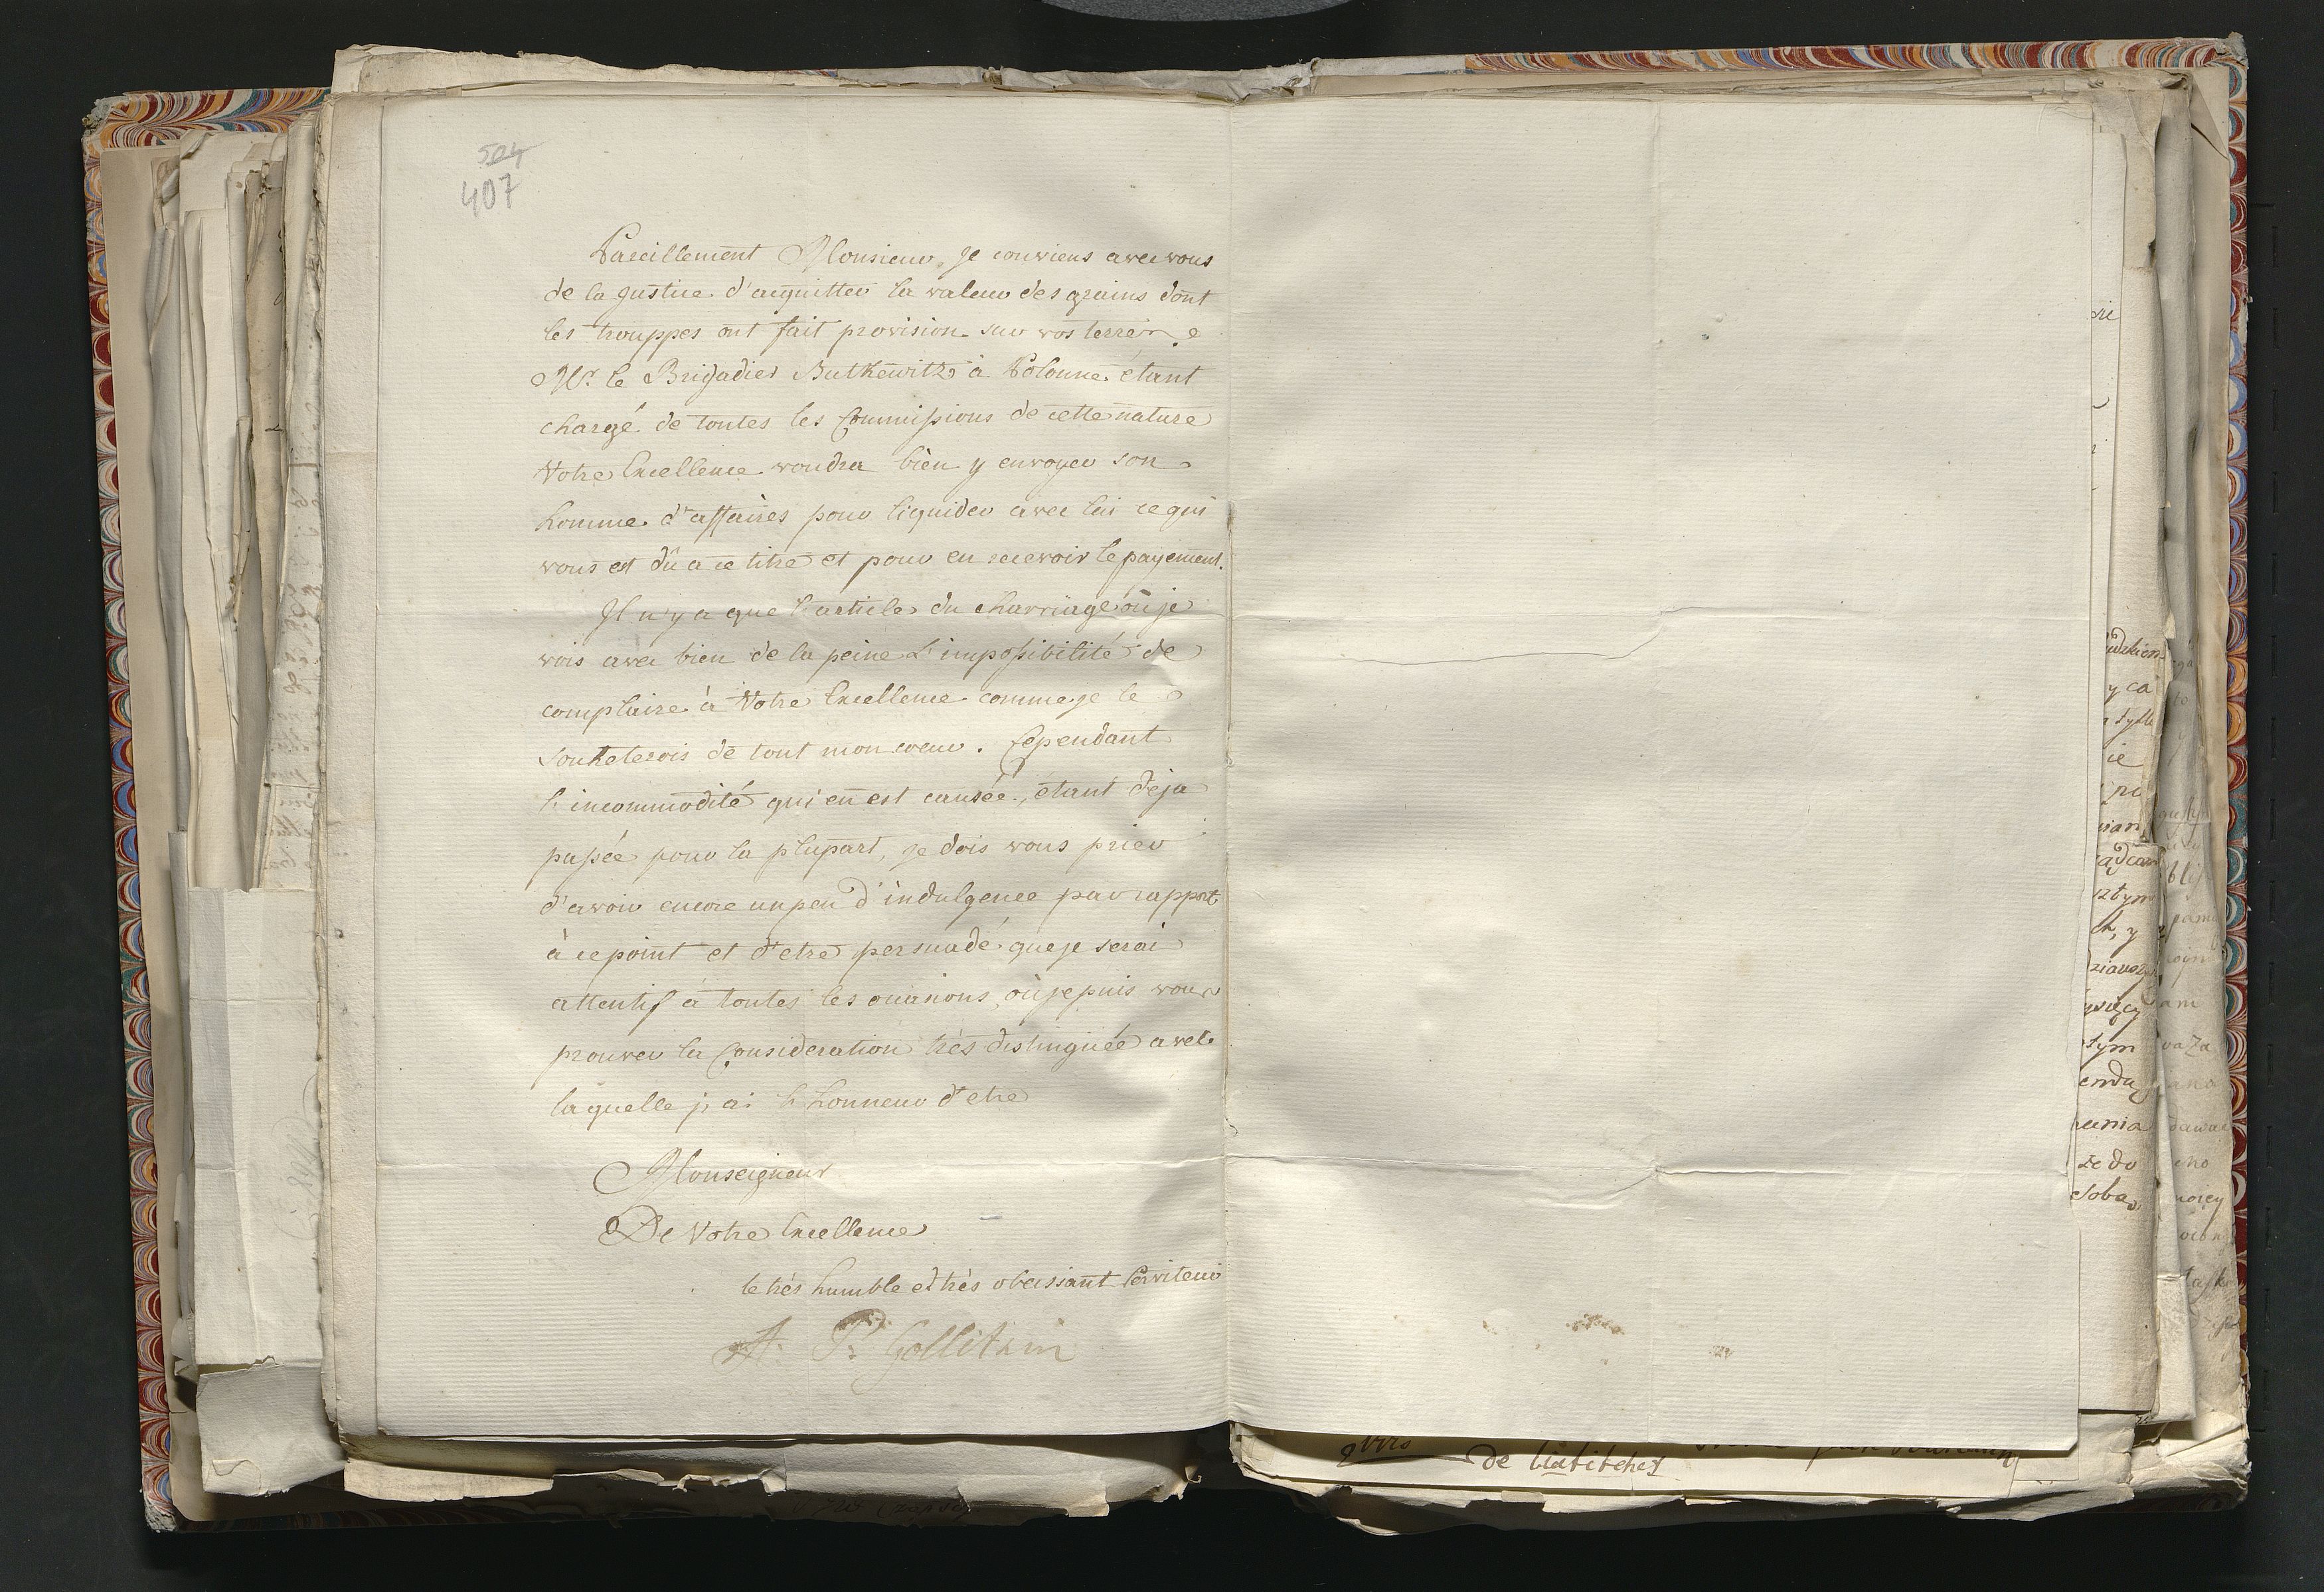 504
407
Pareillement Monsieur, je conviens avec vous
de la justice d'acquitter la valeur des grains dont
les trouppes ont fait provision sur vos terres.
Mr. le Brigadier Butkewitz à Polonne étant
chargé de toutes les Commissions de cette nature
Votre Excellence voudra bien y envoyer son
homme d'affaires pour liquider avec lui ce qui
vous est dû a ce titre et pour en recevoir le payement.
Il n'y a que l'article du charriage où je
vois avec bien de la peine l'impossibilité de
complaire à Votre Excellence comme je le
souheterois de tout mon coeur. Cependant
l'incommodité qui en est causée, étant deja
passée pour la plupart, je dois vous prier
d'avoir encore un peu d'indulgence par rapport
à ce point et d'etre persuadé que je serai
attentif à toutes les occasions, où je puis vous
prouver la Consideration très distinguée avec
laquelle j'ai l'honneur d'etre
Monseigneur
De Votre Excellence
le très humble et très obeissant Serviteur
A. Pr. Gollitzin
de